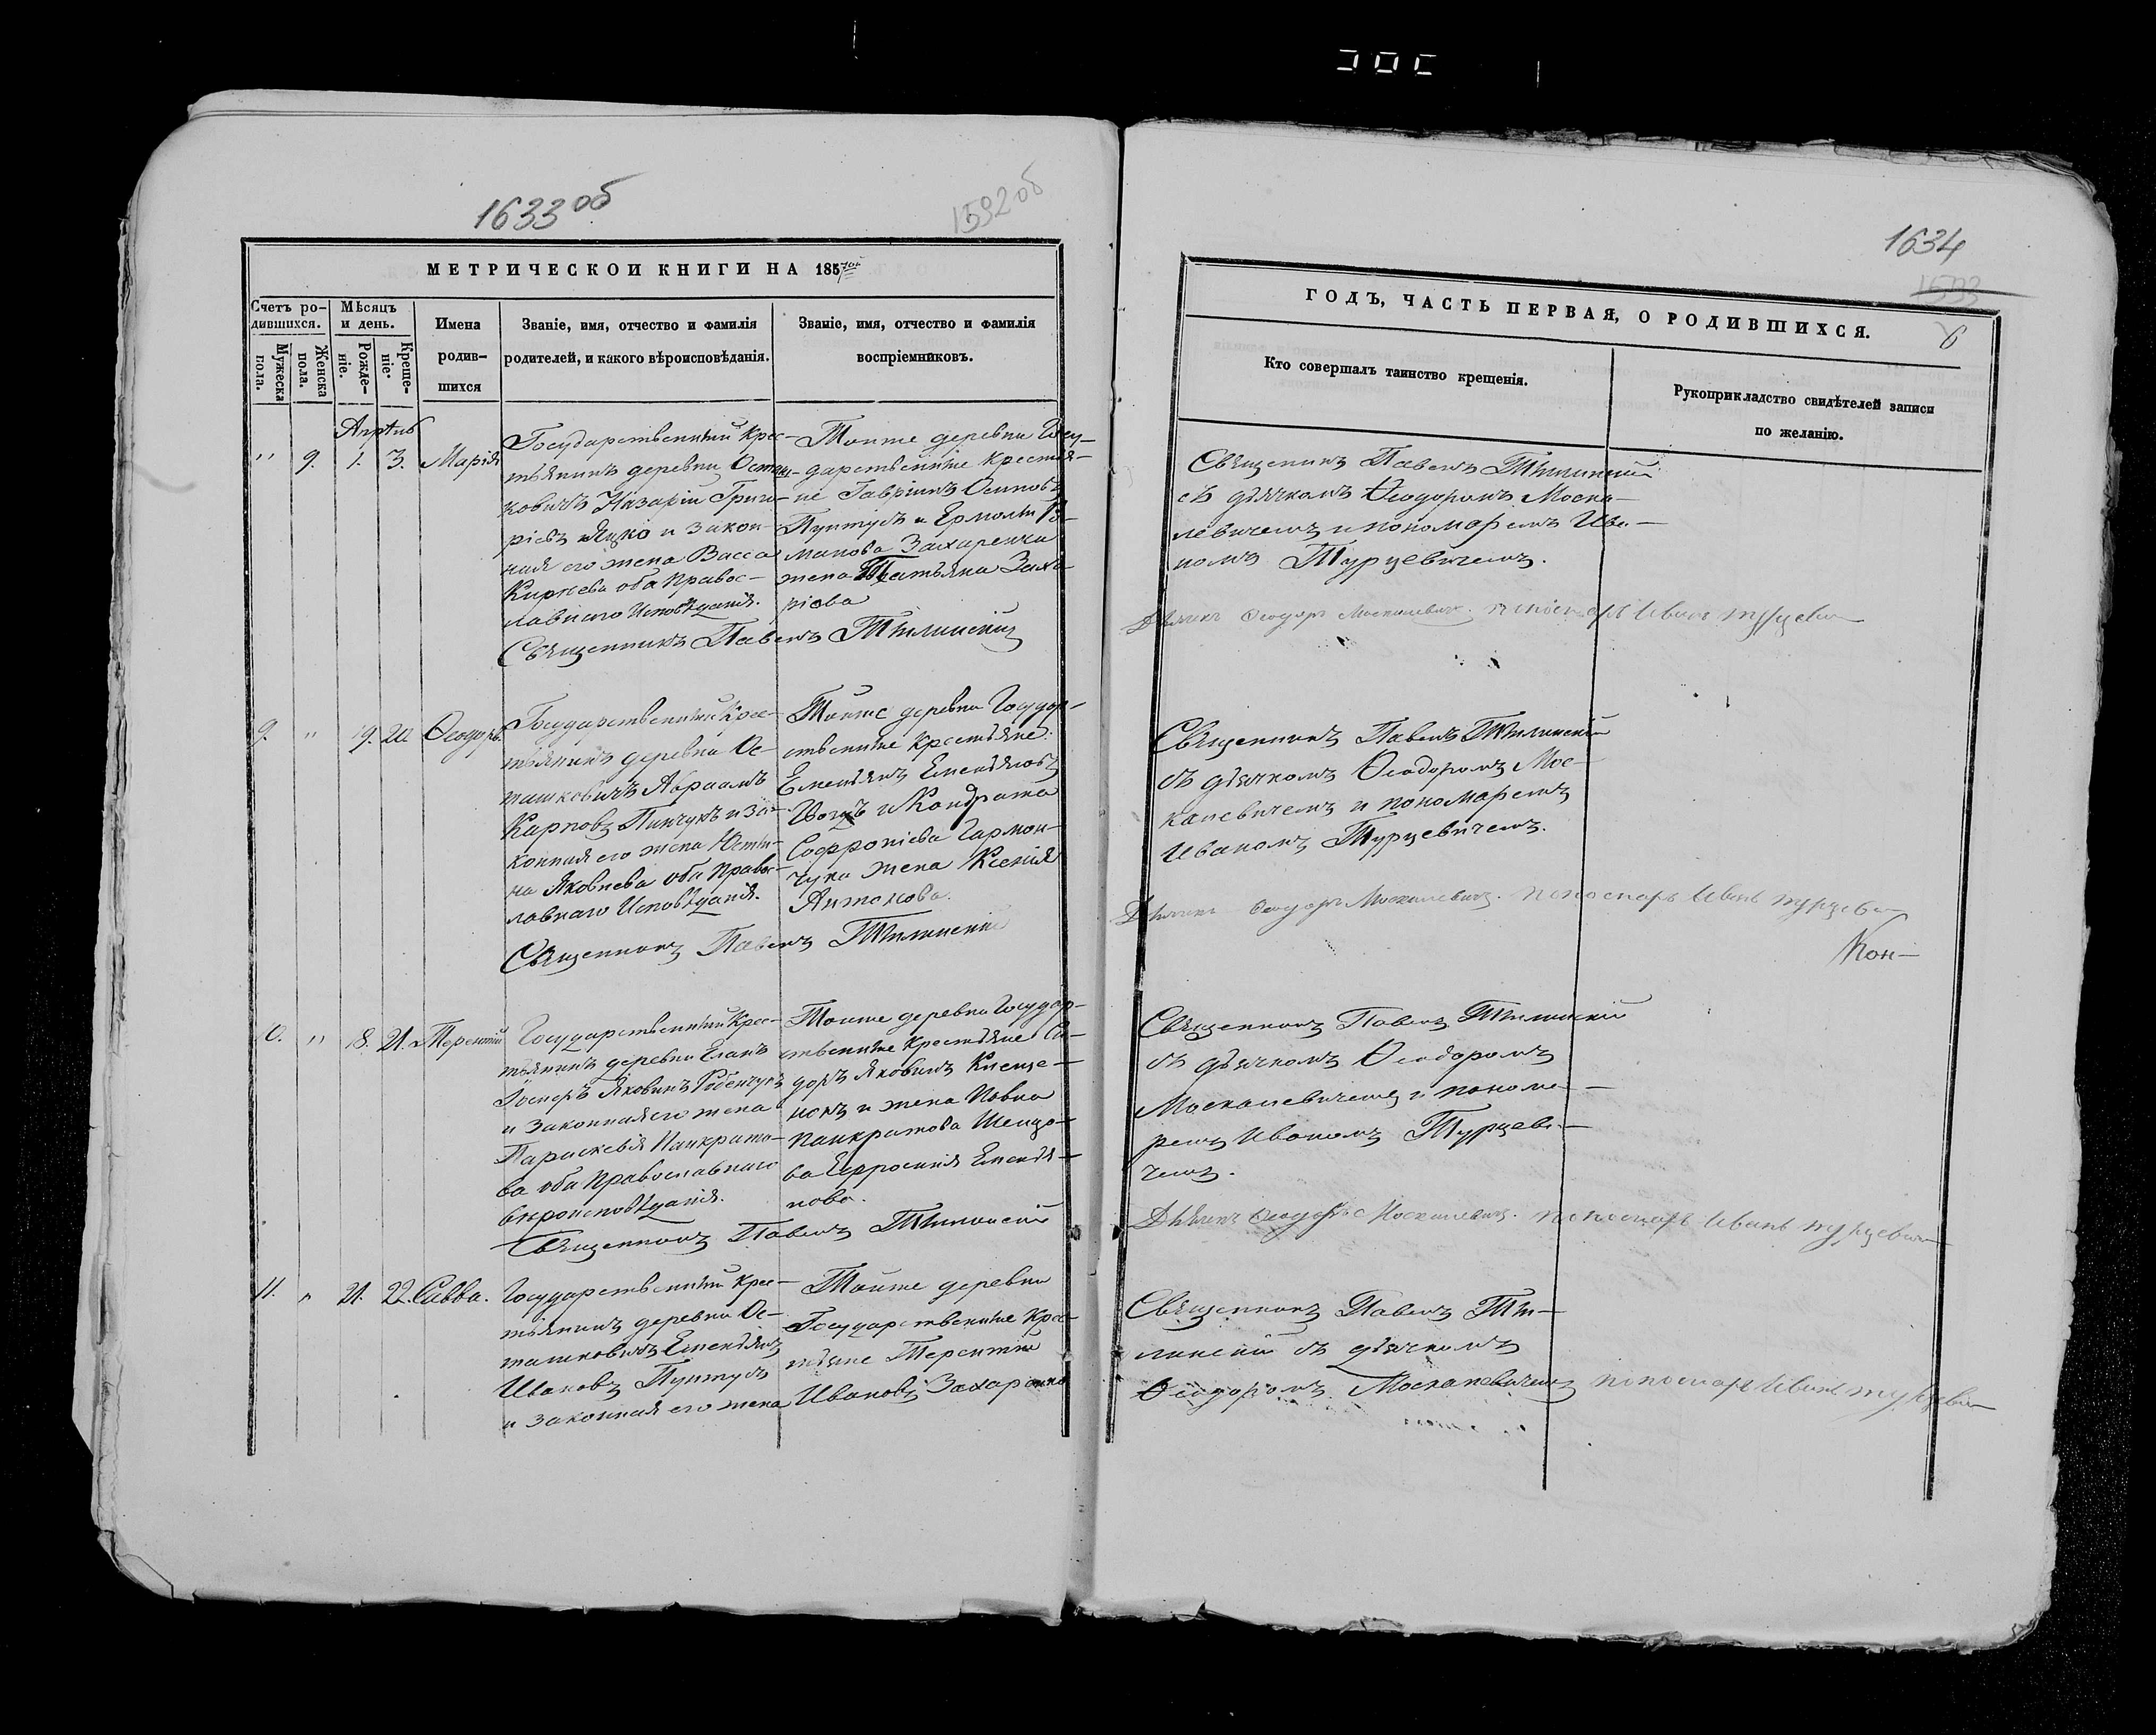 1633 об
1592 об
МЕТРИЧЕСКОЙ КНИГИ НА 1857
Счетъ родившихся.
Мужеска пола.
Женска пола.
Мѣсяцъ и день.
Рожденіе.
Крещеніе.
Имена родившихся
Званіе, имя, отчество и фамилія
родителей, и какого вѣроисповѣданія.
Званіе, имя, отчество и фамилія
воспріемниковъ.
Апрѣль
" 9. 1. 3. Марія
Государственный Крес-
тьянинъ деревни Осташ-
ковичъ Назарій Григо-
ріевъ Яцко и закон-
ная его жена Васса
Карпева оба Правос-
лавнаго Исповѣданія.
Священникъ Павелъ
Тойже деревни Госу-
дарственные крестья-
не Гавріилъ Осиповъ
Пунтусъ и Ермолы Ро-
манова Захаренка
жена Татьяна Заха-
ріова
9. " 19. 20. Ѳеодоръ.
Государственный Крес-
тьянинъ деревни Ос-
ташковичъ Авраамъ
Карповъ Пинчукъ и за-
конная его жена Юсти-
на Яковлева оба Правос-
лавнаго Исповѣданія.
Священникъ Павелъ
Тойже деревни Государ-
ственные Крестьяне
Емельянъ Емельяновъ
и Кондрата
Софроніева Гармон-
чука жена Ксенія
Антонова.
" 18. 21. Терентій
Государственный Крес-
тьянинъ деревни
и законная его жена
Параскевія Панкрато-
ва оба Православнаго
вѣроисповѣданія.
Священникъ Павелъ
Тойже деревни Государ-
ственные Крестьяне Си-
доръ Яковлевъ
и жена
Панкратова
ва Евфросинія Емелья-
нова.
11. " 21. 22. Савва.
Государственный Крес-
тьянинъ деревни Ос-
ташковичъ Емельянъ
Ивановъ Пунтусъ
и законная его жена
Тойже деревни
Государственные Крес-
тьяне Терентій
Ивановъ Захаренко
1634
1593
6
ГОДЪ, ЧАСТЬ ПЕРВАЯ, О РОДИВШИХСЯ.
Кто совершалъ таинство крещенія.
Рукоприкладство свидѣтелей записи
по желанію.
Священникъ Павелъ
съ дьячкомъ Ѳеодоромъ Моска-
левичемъ и пономаремъ Ива-
номъ Турцевичемъ.
Дьячекъ Ѳеодоръ Москалевичъ. пономарь Иванъ Турцевич
Священникъ Павелъ
съ дьячкомъ Ѳеодоромъ Мос-
калевичемъ и пономаремъ
Иваномъ Турцевичемъ.
Дьячекъ Ѳеодоръ Москалевичъ. пономарь Иванъ Турцевич
Кон-
Священникъ Павелъ
съ дьячкомъ Ѳеодоромъ
Москалевичемъ и понома-
ремъ Иваномъ Турцеви-
чемъ.
Дьячекъ Ѳеодоръ Москалевичъ. пономарь Иванъ Турцевич
Священникъ Павелъ
съ дьячкомъ
Ѳеодоромъ Москалевичемъ пономарь Иванъ Турцевич